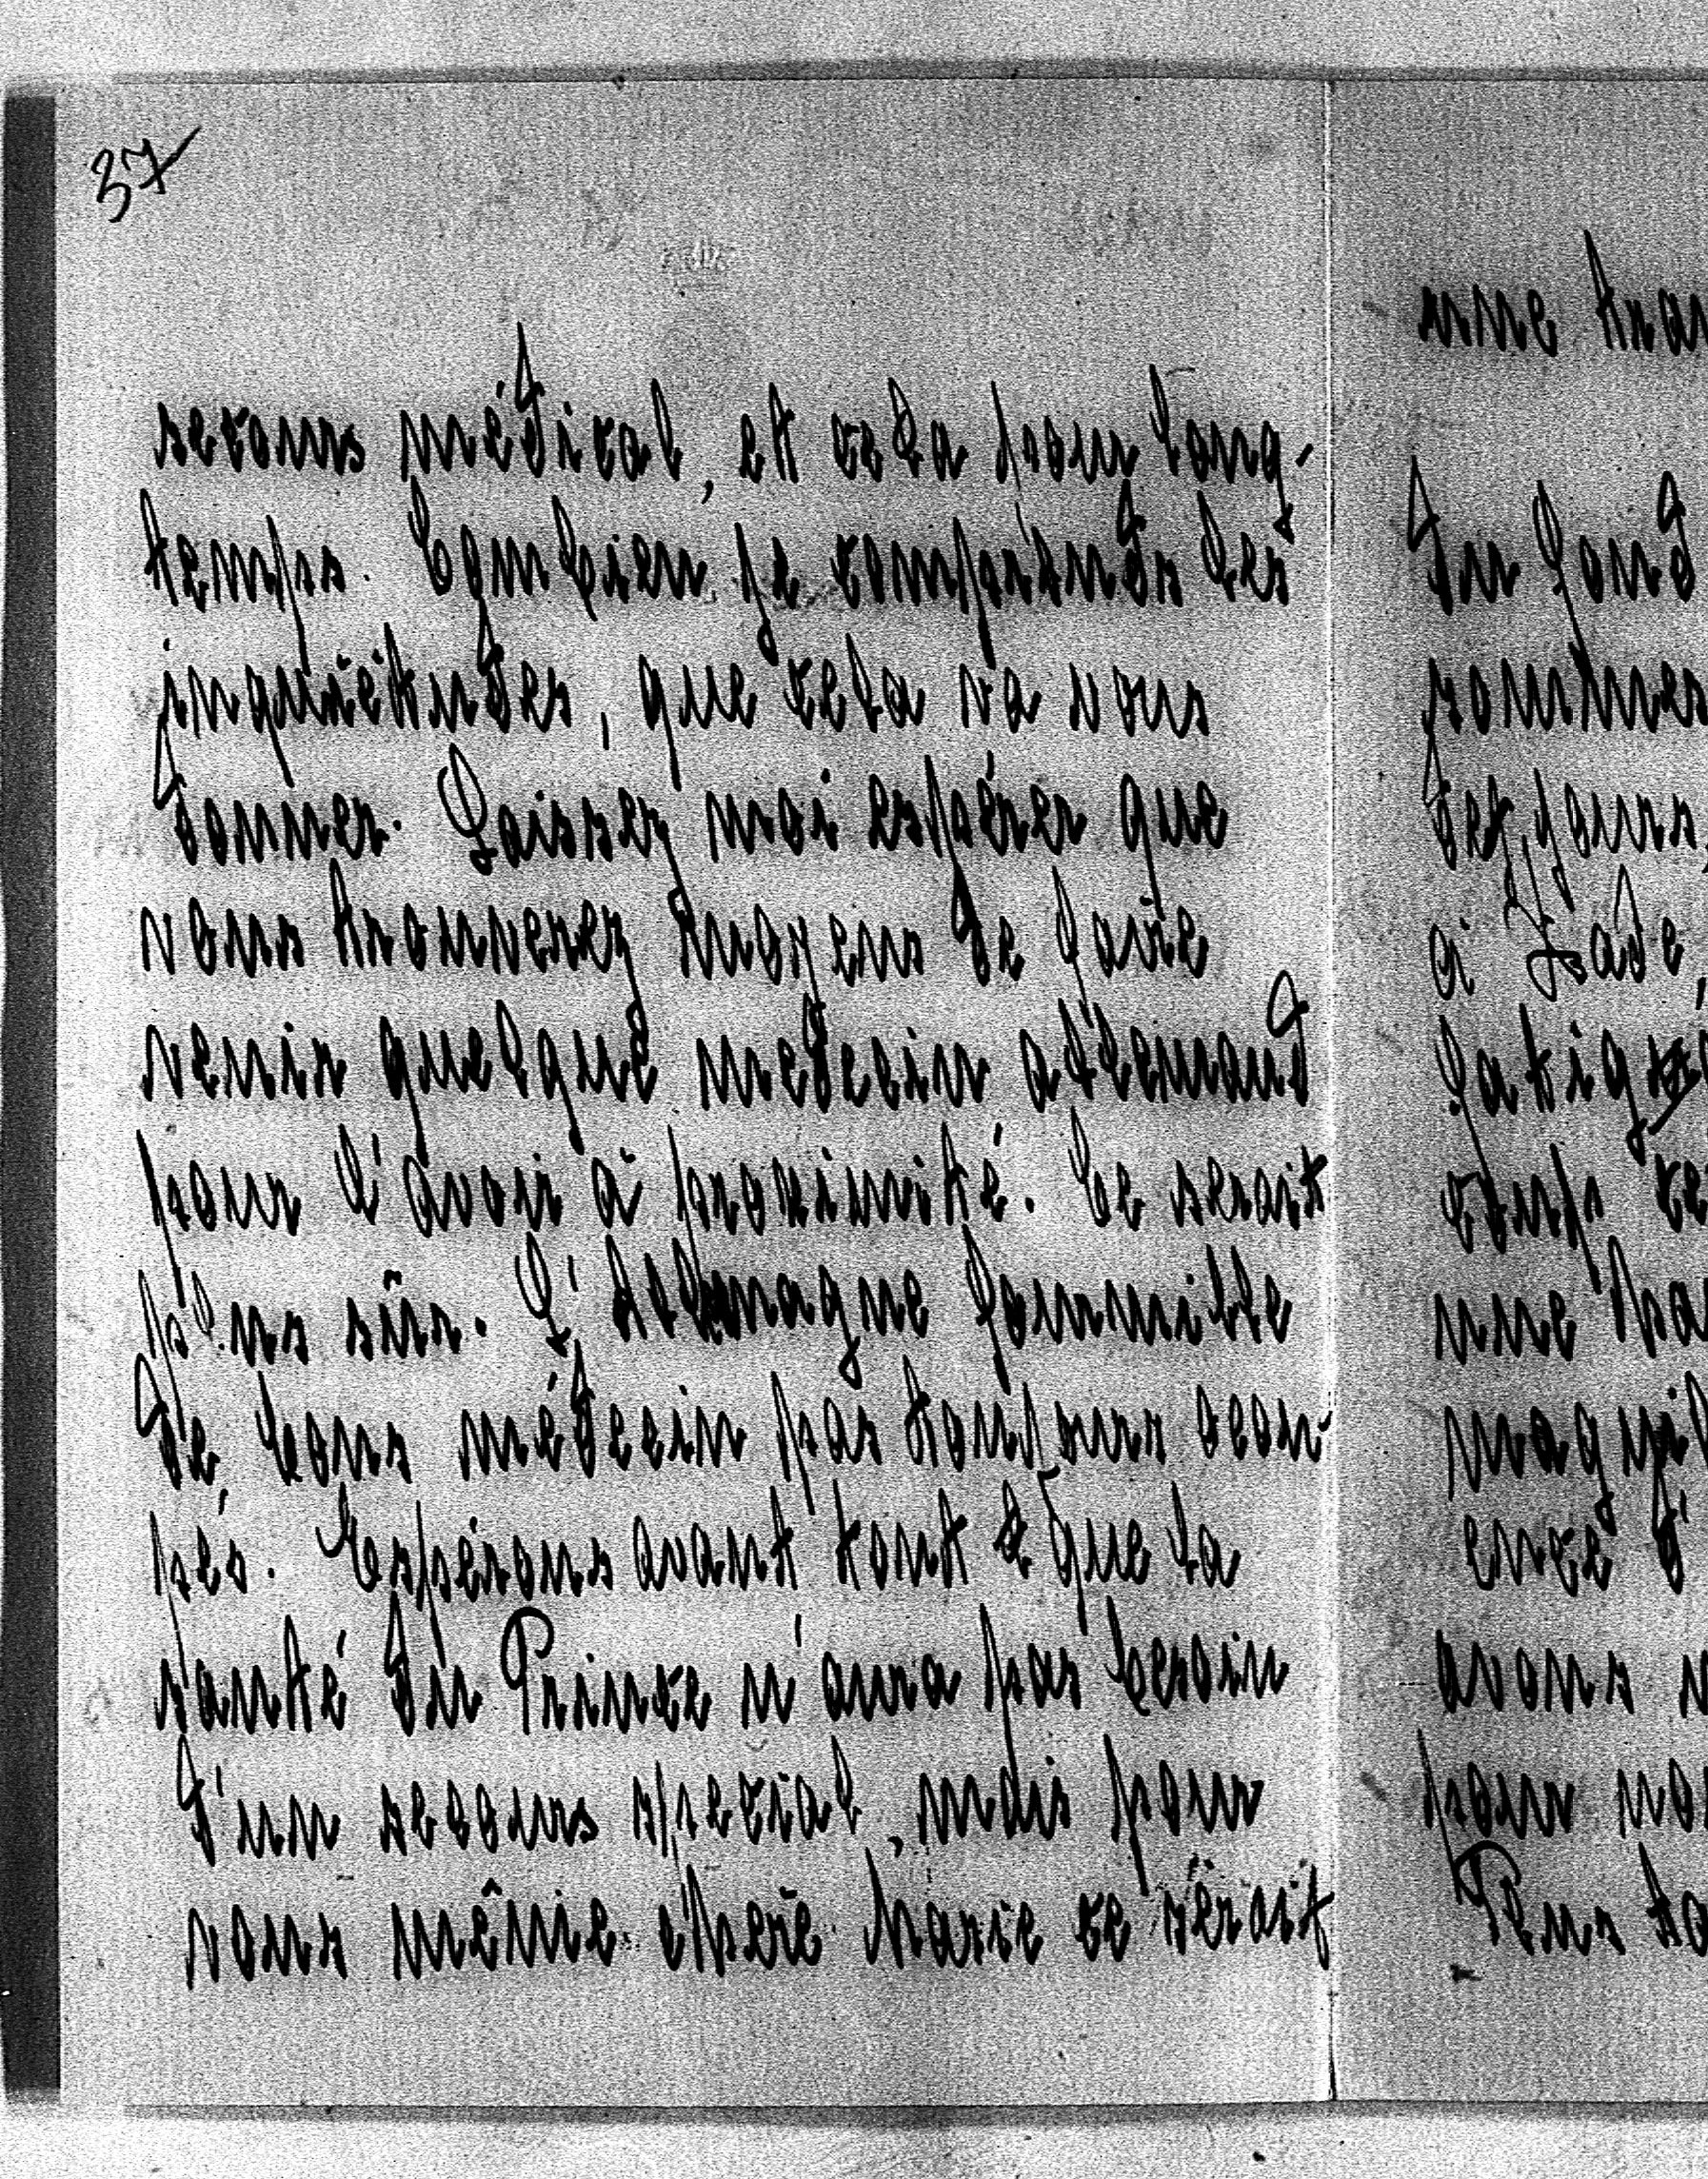 37
secours médical, et cela pour long-
temps. Combien je comprends les
inquiétudes, que cela va vous
donner. Laissez moi espérer que
vous trouverez moyens de faire
venir quelque médecin allemand
pour l'avoir à proximité. Ce serait
plus sûr. L'Allemagne fourmille
de bons médecin pas toujours occu-
pés. Espérons avant tout que la
santé du Prince n'aura pas besoin
d'un secours spécial, mais pour
vous même chère Marie ce serait
une
du
sommes
jours
à
une
avons
pour
Plus